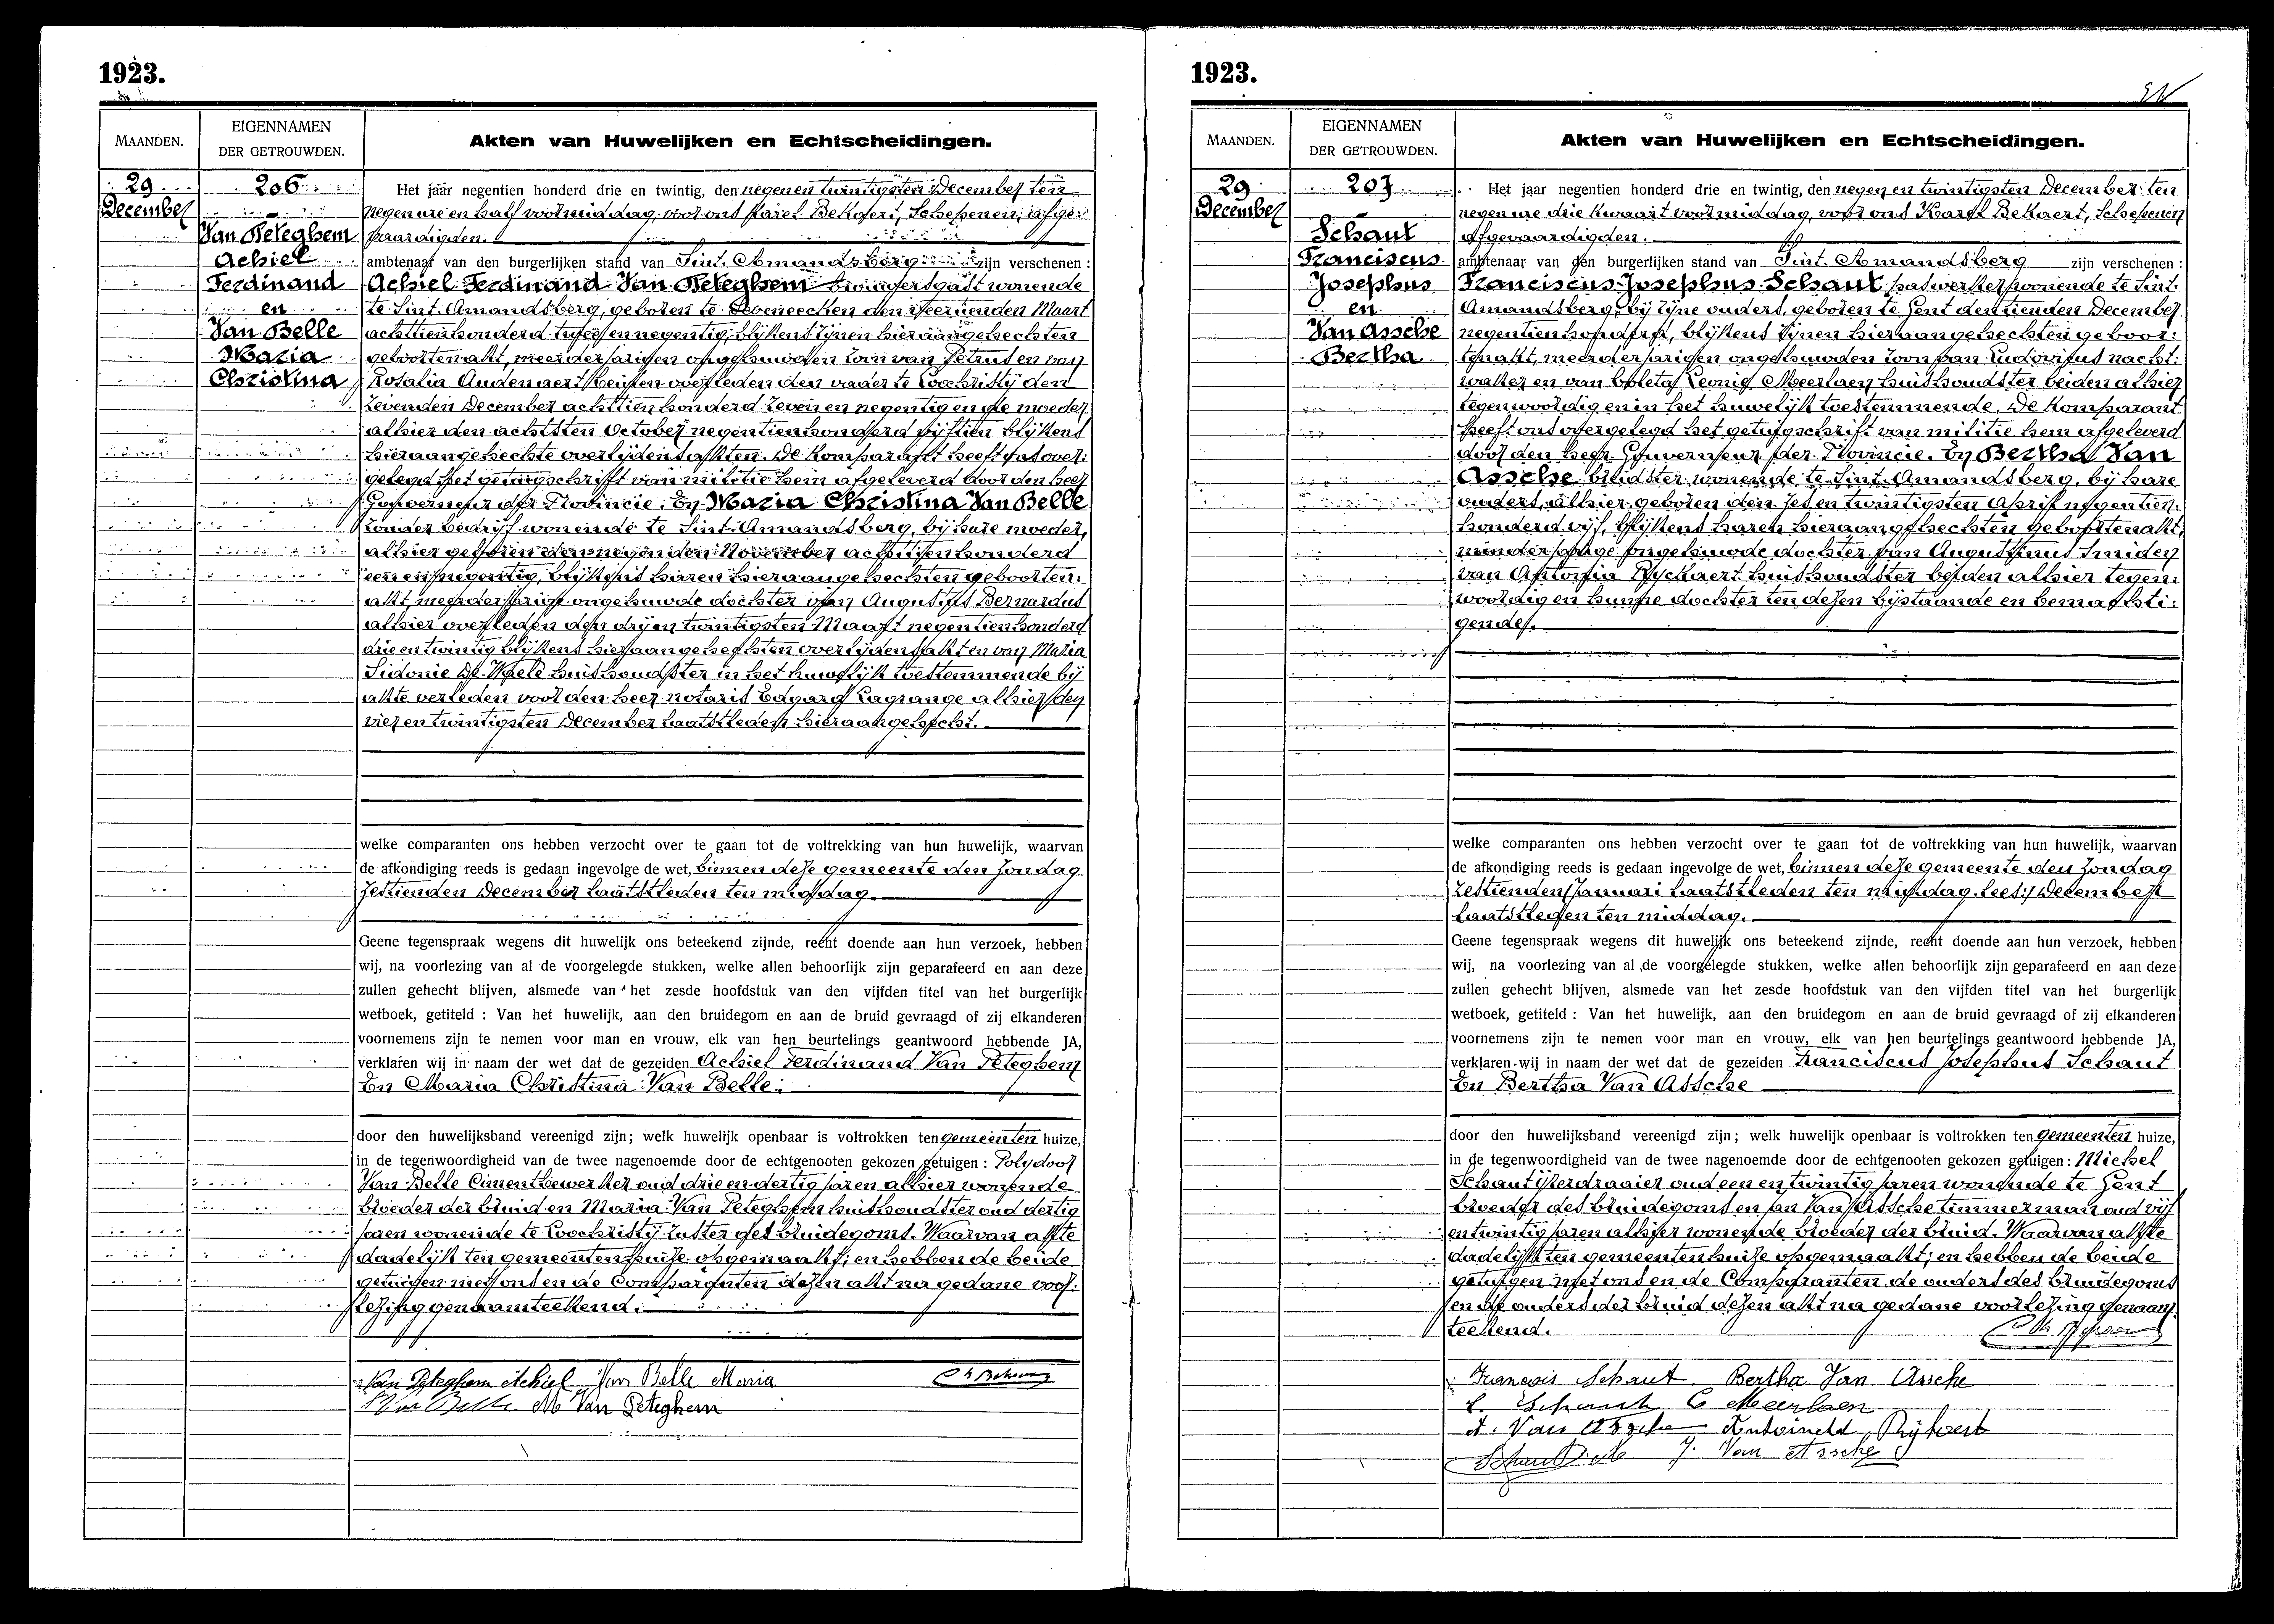 1923.
MAANDEN.
EIGENNAMEN
DER GETROUWDEN.
Akten van Huwelijken en Echtscheidingen.
29
December
206
Van Peteghem
Achiel
Ferdinand
en
Van Belle
Maria
Christina
Het jaar negentien honderd drie en twintig, den negen en twintigsten December ten
negen ure en half voormiddag, voor ons Karel Bekaert, Schepenen, afge:
vaardigden.
ambtenaar van den burgerlijken stand van Sint. Amandsberg zijn verschenen :
Achiel Ferdinand Van Peteghem brouwersgast wonende
te Sint. Amandsberg, geboren te den veertienden Maart
achttienhonderd twee en negentig, blijkens zijnen hieraangehechten
geboortenakt, meerderjarigen ongehuwden zoon van Petrus en van
Rosalia Audenaert, beiden overleden den vader te Loochristij den
zevenden December achttienhonderd zeven en negentig en de moeder
alhier den achtsten October negentienhonderd vijftien blijkens
hieraangehechte overlijdensakten. De Komparant heeft ons over:
gelegd het getuigschrift van militie hem afgeleverd door den heer
Gouverneur der Provincie; En Maria Christina Van Belle
zonder bedrijf wonende te Sint. Amandsberg, bij hare moeder,
alhier geboren den negenden November achttienhonderd
een en negentig, blijkens haren hieraangehechten geboorten:
akt, meerderjarige ongehuwde dochter van Augustus Bernardus
alhier overleden den drij en twintigsten Maart negentienhonderd
drie en twintig blijkens hieraangehechten overlijdensakt en van Maria
Sidonie De Waele huishoudster in het huwelijk toestemmende bij
akte verleden voor den heer notaris Edgard Lagrange alhier den
vier en twintigsten December laatstleden hieraangehecht.
welke comparanten ons hebben verzocht over te gaan tot de voltrekking van hun huwelijk, waarvan
de afkondiging reeds is gedaan ingevolge de wet, binnen deze gemeente den zondag
zestienden December laatstleden ten middag.
Geene tegenspraak wegens dit huwelijk ons beteekend zijnde, recht doende aan hun verzoek, hebben
wij, na voorlezing van al de voorgelegde stukken, welke allen behoorlijk zijn geparafeerd en aan deze
zullen gehecht blijven, alsmede van het zesde hoofdstuk van den vijfden titel van het burgerlijk
wetboek, getiteld : Van het huwelijk, aan den bruidegom en aan de bruid gevraagd of zij elkanderen
voornemens zijn te nemen voor man en vrouw, elk van hen beurtelings geantwoord hebbende JA,
verklaren wij in naam der wet dat de gezeiden Achiel Ferdinand Van Peteghem
En Maria Christina Van Belle;
door den huwelijksband vereenigd zijn; welk huwelijk openbaar is voltrokken ten gemeenten huize,
in de tegenwoordigheid van de twee nagenoemde door de echtgenooten gekozen getuigen : Polydoor
Van Belle Cimentbewerker oud drie en dertig jaren alhier wonende
broeder der bruid en Maria Van Peteghem huishoudster oud dertig
jaren wonende te Loochristij zuster des bruidegoms. Waarvan akte
dadelijk ten gemeentenhuize opgemaakt; en hebben de beide
getuigen met ons en de Comparanten dezen akt na gedane voor:
lezing genaamteekend.
Van Peteghem Achiel Van Belle Maria
Van Belle M Van Peteghem
1923.
MAANDEN.
EIGENNAMEN
DER GETROUWDEN.
Akten van Huwelijken en Echtscheidingen.
29
December
207
Schaut
Franciscus
Josephus
en
Van Assche
Bertha
Het jaar negentien honderd drie en twintig, den negen en twintigsten December ten
negen ure drie kwaart voormiddag, voor ons Karel Bekaert, Schepenen
afgevaardigden.
ambtenaar van den burgerlijken stand van Sint. Amandsberg zijn verschenen :
Franciscus Josephus Schaut, wonende te Sint.
Amandsberg, bij zijne ouders, geboren te Gent den tienden December
negentienhonderd, blijkens zijnen hieraangehechten geboor:
tenakt, meerderjarigen ongehuwden zoon van Ludovicus nacht:
waker en van Coleta Leonie Meerlaen huishoudster beiden alhier
tegenwoordig en in het huwelijk toestemmende. De Komparant
heeft ons overgelegd het getuigschrift van militie hem afgeleverd
door den heer Gouverneur der Provincie. En Bertha Van
Assche breidster wonende te Sint. Amandsberg, bij hare
ouders, alhier geboren den zes en twintigsten April negentien:
honderd vijf, blijkens haren hieraangehechten geboortenakt,
minderjarige ongehuwde dochter van Augustinus smid en
van Antonia Ryckaert huishoudster beiden alhier tegen:
woordig en hunne dochter ten dezen bijstaande en bemachti:
gende.
welke comparanten ons hebben verzocht over te gaan tot de voltrekking van hun huwelijk, waarvan
de afkondiging reeds is gedaan ingevolge de wet, binnen deze gemeente den zondag
zestienden Januari laatstleden ten middag. lees:/ December
laatstleden ten middag.
Geene tegenspraak wegens dit huwelijk ons beteekend zijnde, recht doende aan hun verzoek, hebben
wij, na voorlezing van al de voorgelegde stukken, welke allen behoorlijk zijn geparafeerd en aan deze
zullen gehecht blijven, alsmede van het zesde hoofdstuk van den vijfden titel van het burgerlijk
wetboek, getiteld : Van het huwelijk, aan den bruidegom en aan de bruid gevraagd of zij elkanderen
voornemens zijn te nemen voor man en vrouw, elk van hen beurtelings geantwoord hebbende JA,
verklaren wij in naam der wet dat de gezeiden Franciscus Josephus Schaut
En Bertha Van Assche
door den huwelijksband vereenigd zijn; welk huwelijk openbaar is voltrokken ten gemeenten huize,
in de tegenwoordigheid van de twee nagenoemde door de echtgenooten gekozen getuigen : Michel
Schaut ijzerdraaier oud een en twintig jaren wonende te Gent
broeder des bruidegoms en Jan Van Assche timmerman oud vijf
en twintig jaren alhier wonende broeder der bruid. Waarvan akte
dadelijk ten gemeentenhuize opgemaakt; en hebben de beide
getuigen met ons en de Comparanten de ouders des bruidegoms
en de ouders der bruid dezen akt na gedane voorlezing genaam:
teekend.
Francois Schaut Bertha Van Assche
L. Schaut C Meerlaen
A. Van Assche
J. Van Assche